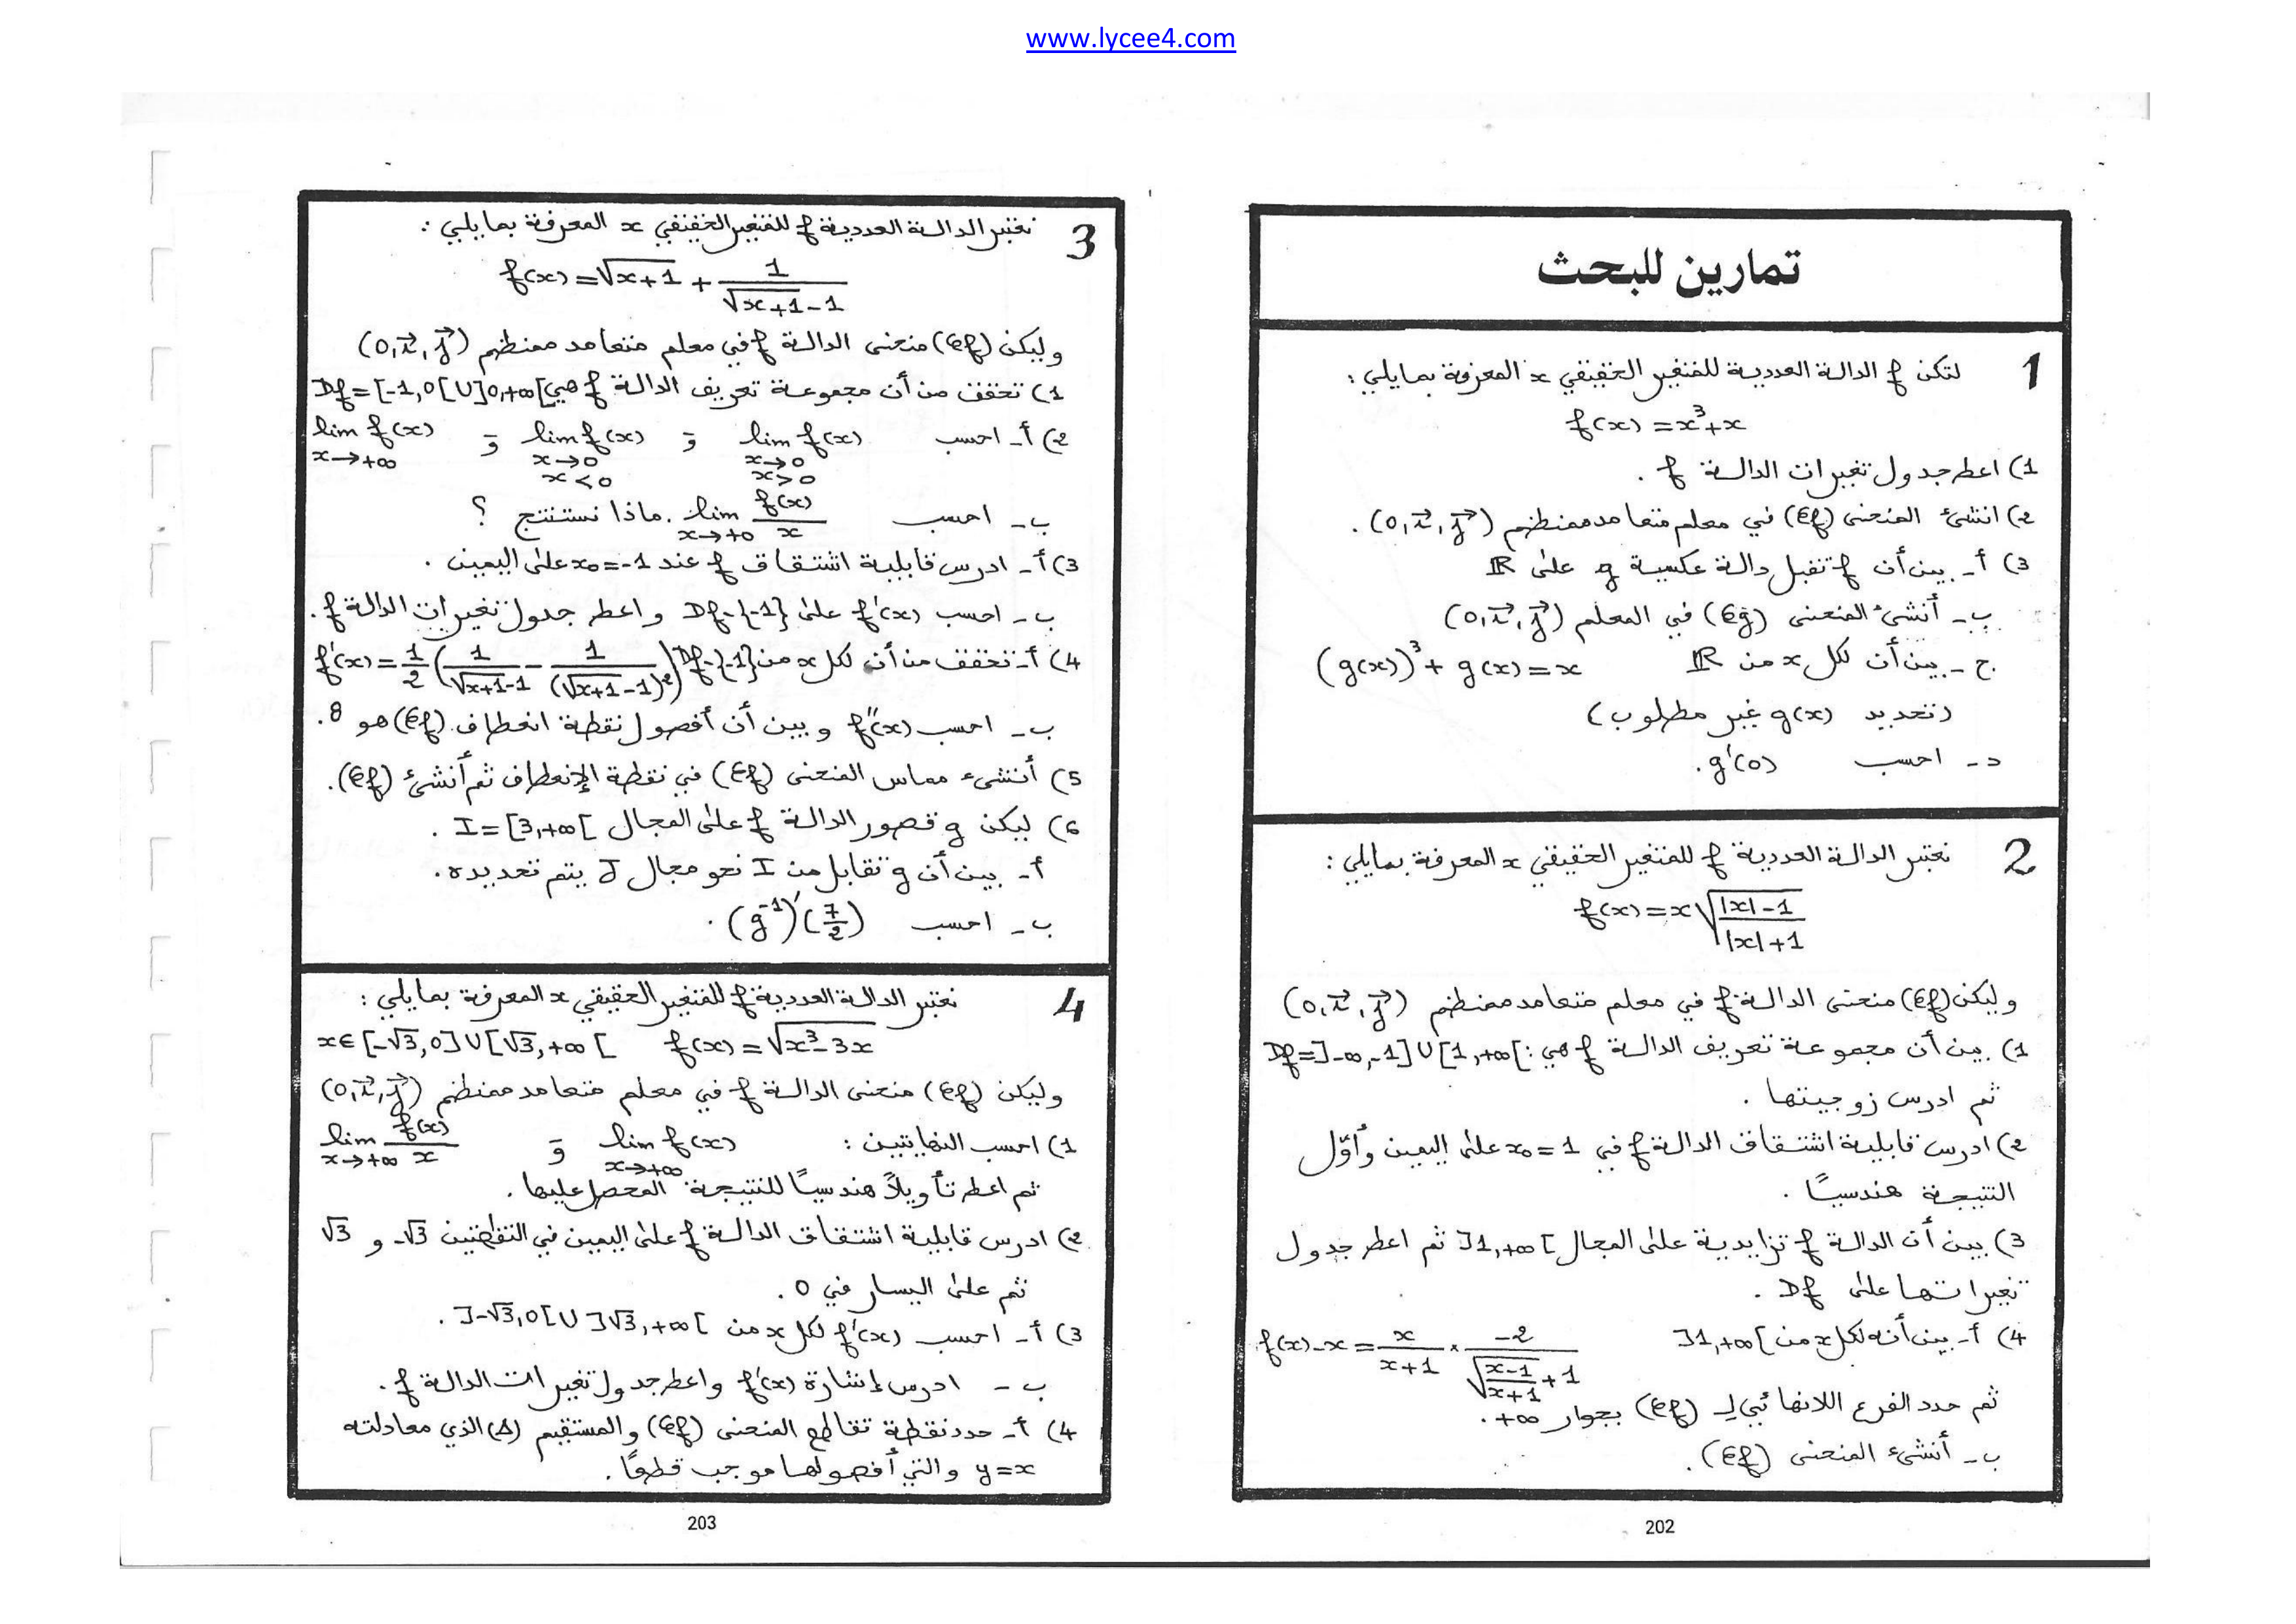 www.lycee4.com
تمارين للبحث
1 لتكن f الدالة العددية للمتغير الحقيقي x المعرفة بمايلي :
f(x) = x³+x
1) اعط جدول تغيرات الدالة f .
2) انشئ المنحنى (Cf) في معلم متعامد ممنظم (O,i⃗,j⃗) .
3) أ - بين أن f تقبل دالة عكسية g على ℝ
ب - أنشئ المنحنى (Cg) في المعلم (O,i⃗,j⃗)
ج - بين أن لكل x من ℝ (g(x))³ + g(x) = x
(تحديد g(x) غير مطلوب)
د - احسب g'(0).
2 نعتبر الدالة العددية f للمتغير الحقيقي x المعرفة بمايلي :
f(x) = x√((|x|-1)/(|x|+1))
وليكن (Cf) منحنى الدالة f في معلم متعامد ممنظم (O,i⃗,j⃗)
1) بين أن مجموعة تعريف الدالة f هي : Df=]-∞,-1]∪[1,+∞[
ثم ادرس زوجيتها .
2) ادرس قابلية اشتقاق الدالة f في x₀=1 على اليمين وأوّل
النتيجة هندسيًا .
3) بين أن الدالة f تزايدية على المجال ]1,+∞[ ثم اعط جدول
تغيراتها على Df .
4) أ - بين أنه لكل x من ]1,+∞[ f(x)-x = x/(x+1) × -2/(√((x-1)/(x+1))+1)
ثم حدد الفرع اللانهائي لـ (Cf) بجوار +∞ .
ب - أنشئ المنحنى (Cf) .
202
3 نعتبر الدالة العددية f للمتغير الحقيقي x المعرفة بمايلي :
f(x) = √(x+1) + 1/(√(x+1)-1)
وليكن (Cf) منحنى الدالة f في معلم متعامد ممنظم (O,i⃗,j⃗)
1) تحقق من أن مجموعة تعريف الدالة f هي Df=[-1,0[∪]0,+∞[
2) أ - احسب lim f(x) x→0 x>0 و lim f(x) x→0 x<0 و lim f(x) x→+∞
ب - احسب lim f(x)/x x→+∞ . ماذا نستنتج ؟
3) أ - ادرس قابلية اشتقاق f عند x₀=-1 على اليمين .
ب - احسب f'(x) على Df-{-1} واعط جدول تغيرات الدالة f .
4) أ - تحقق من أن لكل x من Df-{-1} f'(x) = 1/2 (1/(√(x+1)-1) - 1/(√(x+1)-1)²)
ب - احسب f''(x) وبين أن أفصول نقطة انعطاف (Cf) هو 8 .
5) أنشئ مماس المنحنى (Cf) في نقطة الإنعطاف ثم أنشئ (Cf) .
6) ليكن g قصور الدالة f على المجال I=[3,+∞[ .
أ - بين أن g تقابل من I نحو مجال J يتم تحديده .
ب - احسب (g⁻¹)'(7/2) .
4 نعتبر الدالة العددية f للمتغير الحقيقي x المعرفة بمايلي :
f(x) = √(x³-3x) x∈[-√3,0]∪[√3,+∞[
وليكن (Cf) منحنى الدالة f في معلم متعامد ممنظم (O,i⃗,j⃗)
1) احسب النهايتين : lim f(x) x→+∞ و lim f(x)/x x→+∞
ثم اعط تأويلاً هندسيًا للنتيجة المحصل عليها .
2) ادرس قابلية اشتقاق الدالة f على اليمين في النقطتين -√3 و √3
ثم على اليسار في 0 .
3) أ - احسب f'(x) لكل x من ]-√3,0[∪]√3,+∞[ .
ب - ادرس إشارة f'(x) واعط جدول تغيرات الدالة f .
4) أ - حدد نقطة تقاطع المنحنى (Cf) والمستقيم (Δ) الذي معادلته
y=x والتي أفصولها موجب قطعًا .
203